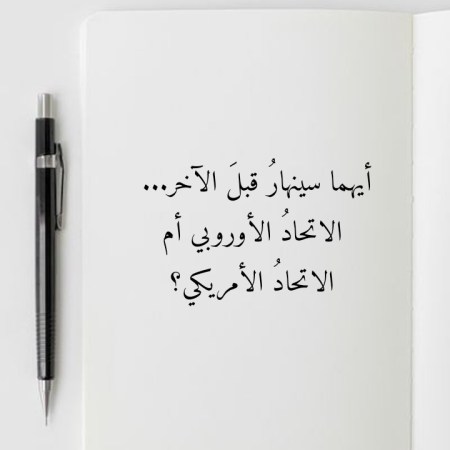 أيهما سينهارُ قبلَ الآخر...
الاتحادُ الأوروبي أم
الاتحادُ الأمريكي؟